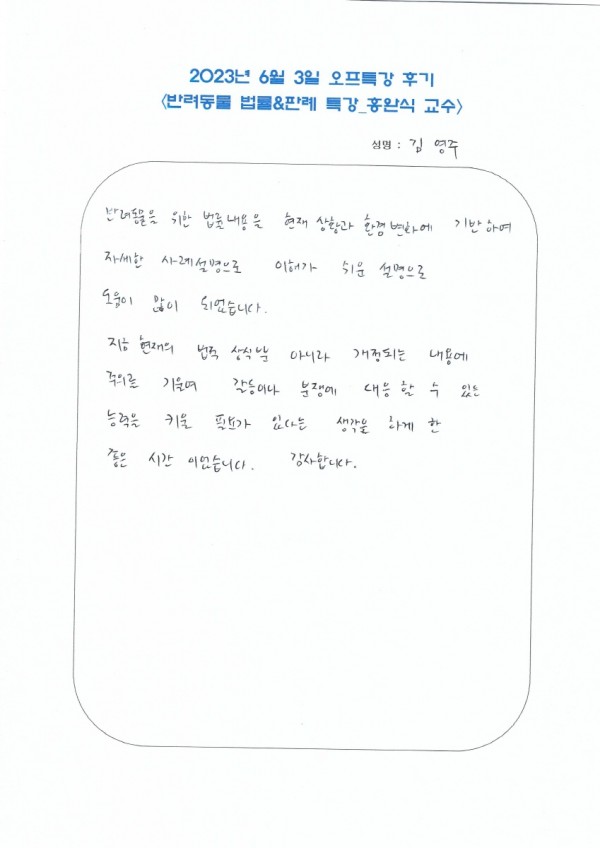 2023년 6월 3일 오프특강 후기
<반려동물 법률&판례 특강_홍완식 교수>
성명 : 김 영주
반려동물을 위한 법률내용을 현재 상황과 환경변화에 기반하여
자세한 사례설명으로 이해가 쉬운 설명으로
도움이 많이 되었습니다.
지금 현재의 법적 상식뿐 아니라 개정되는 내용에
주의를 기울여 갈등이나 분쟁에 대응 할 수 있는
능력을 키울 필요가 있다는 생각을 하게 한
좋은 시간 이었습니다. 감사합니다.